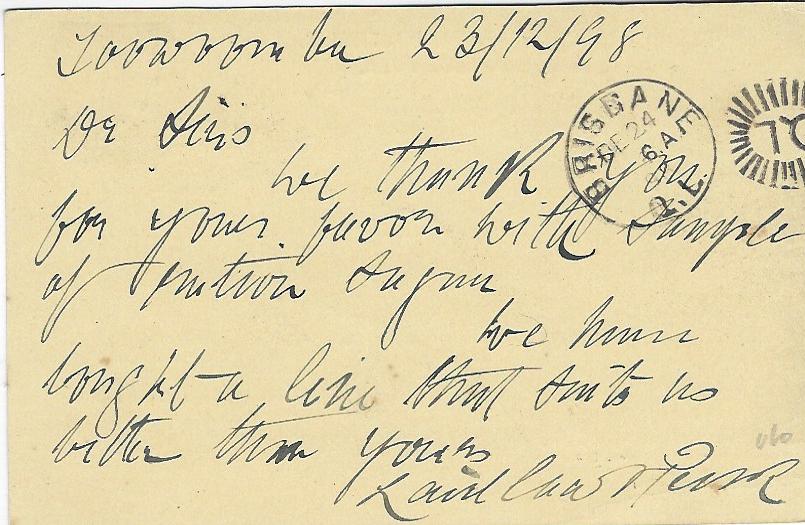 Toowoomba 23/12/98
BRISBANE
DE 24
6.A
Q.L
QL
Dr Sirs
We thank you
for your favor with sample
of sugar
We have
bought a line that suits us
better than yours
Laidlaw & Peak